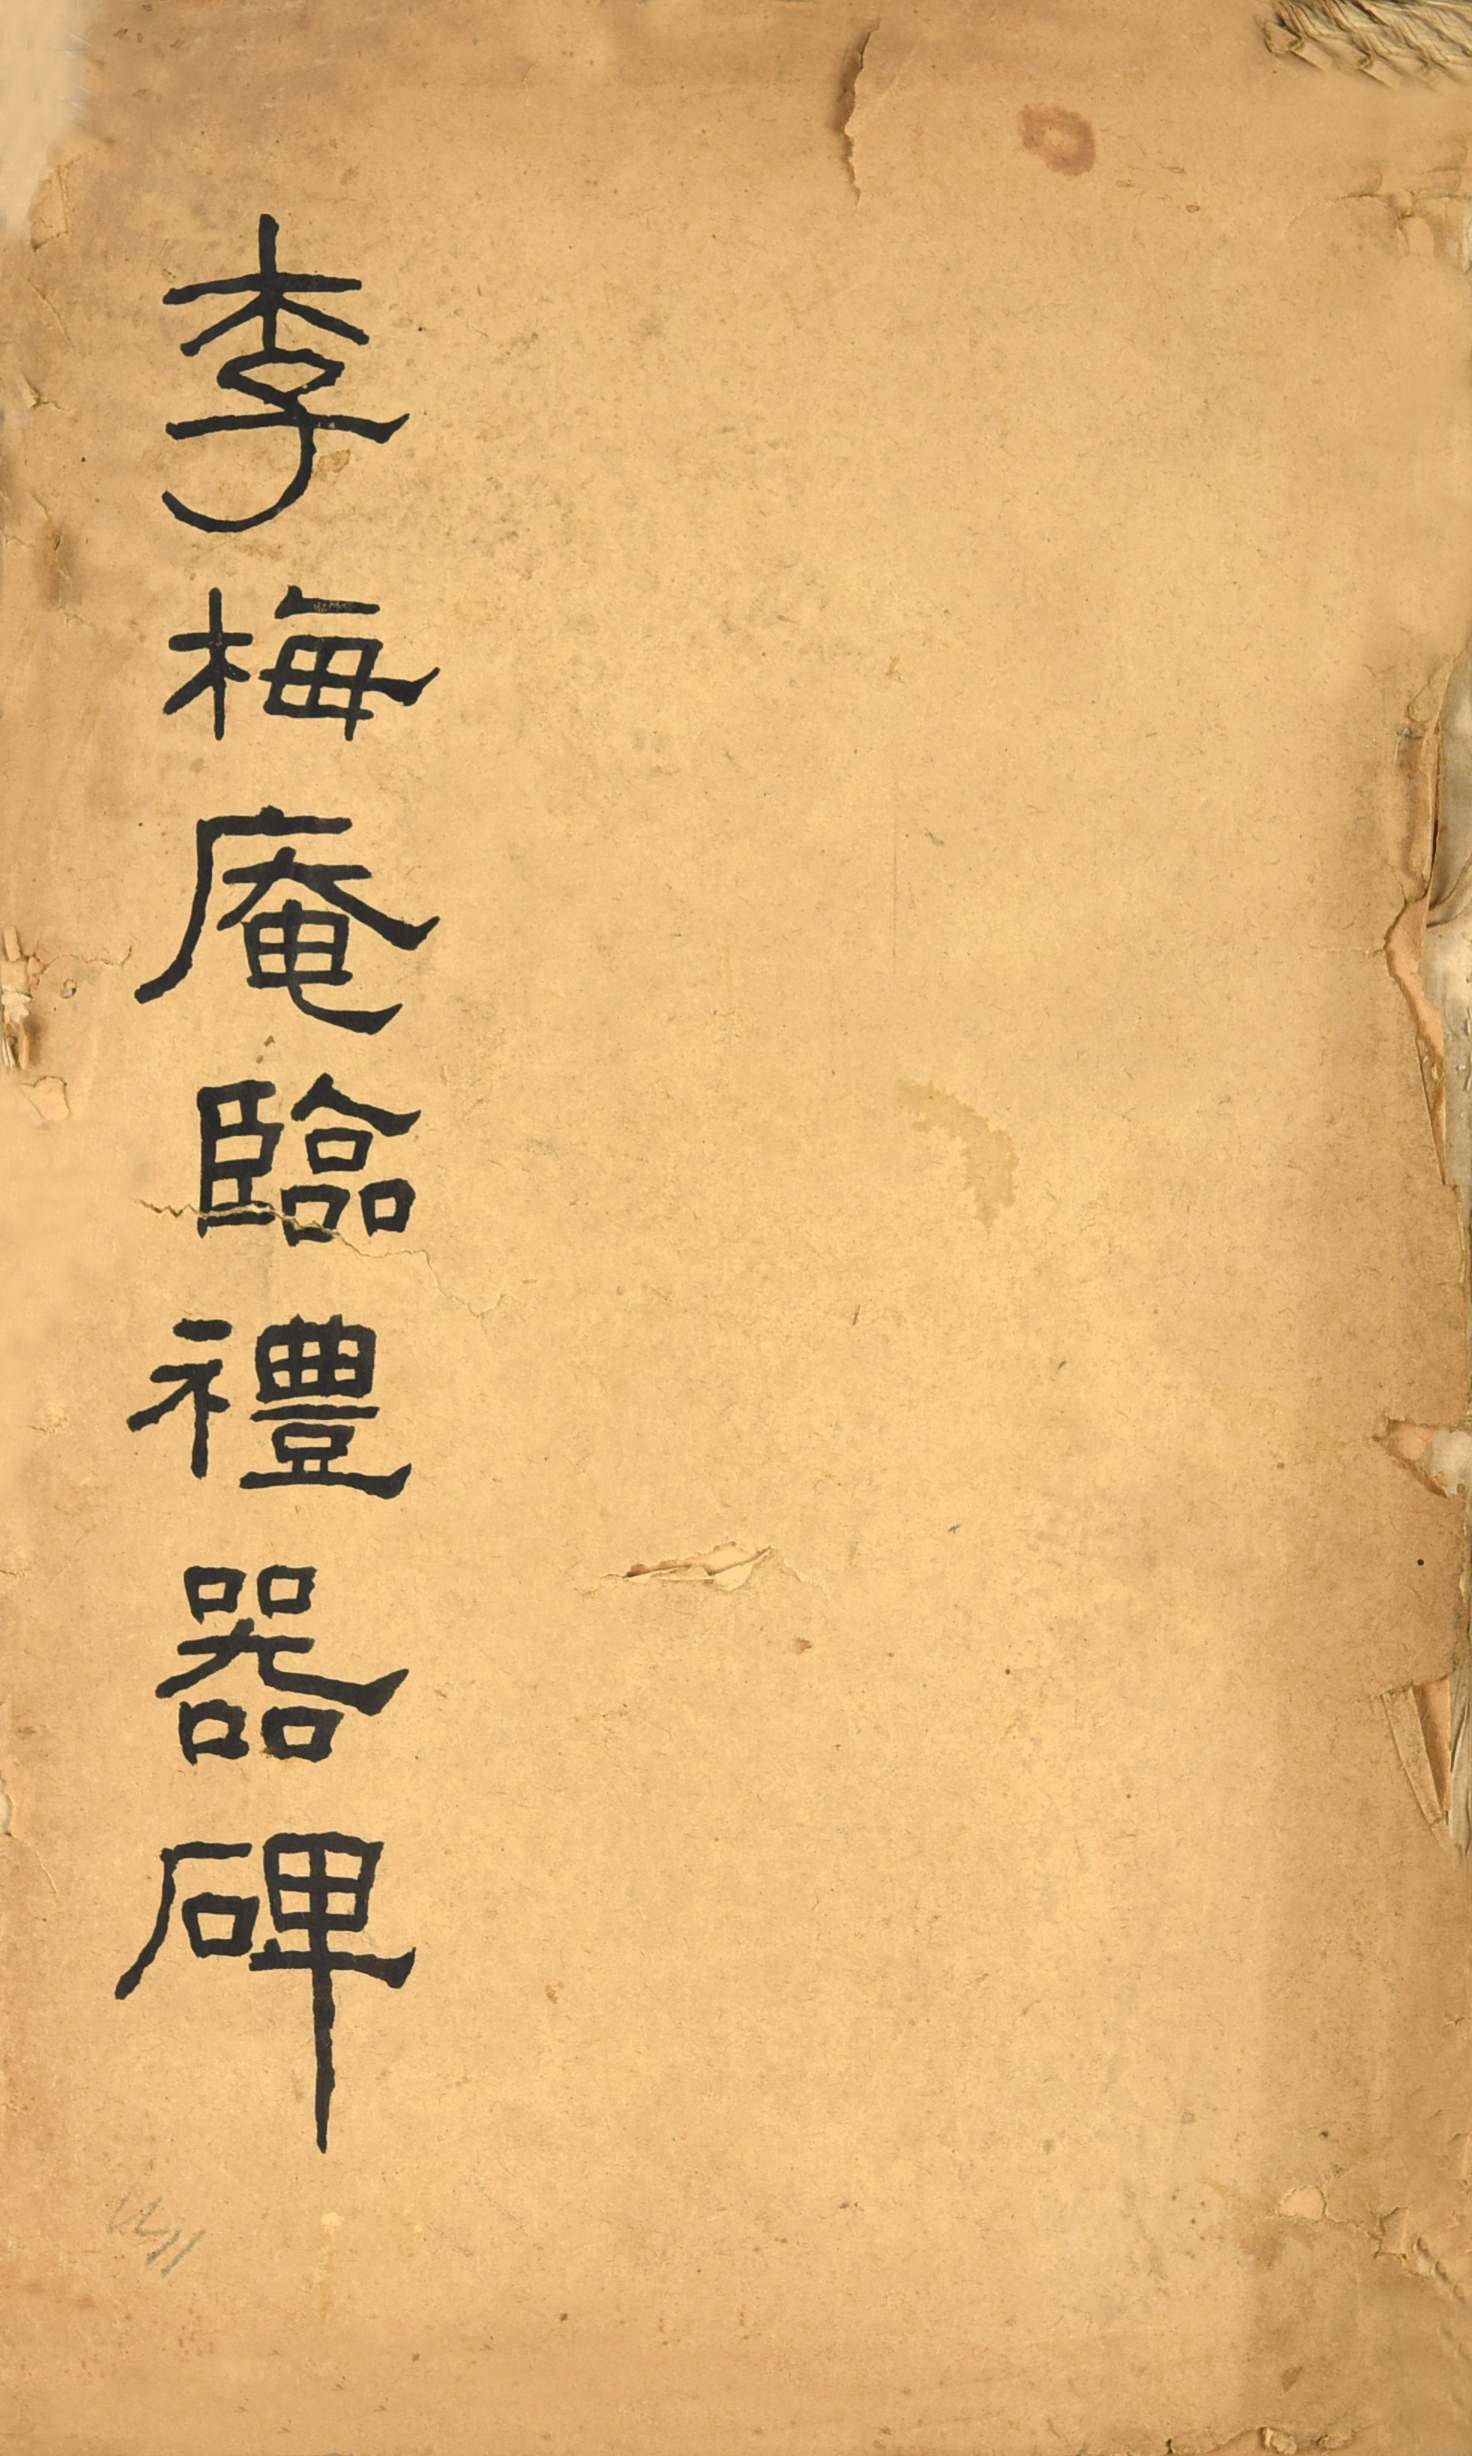 李梅庵臨禮器碑